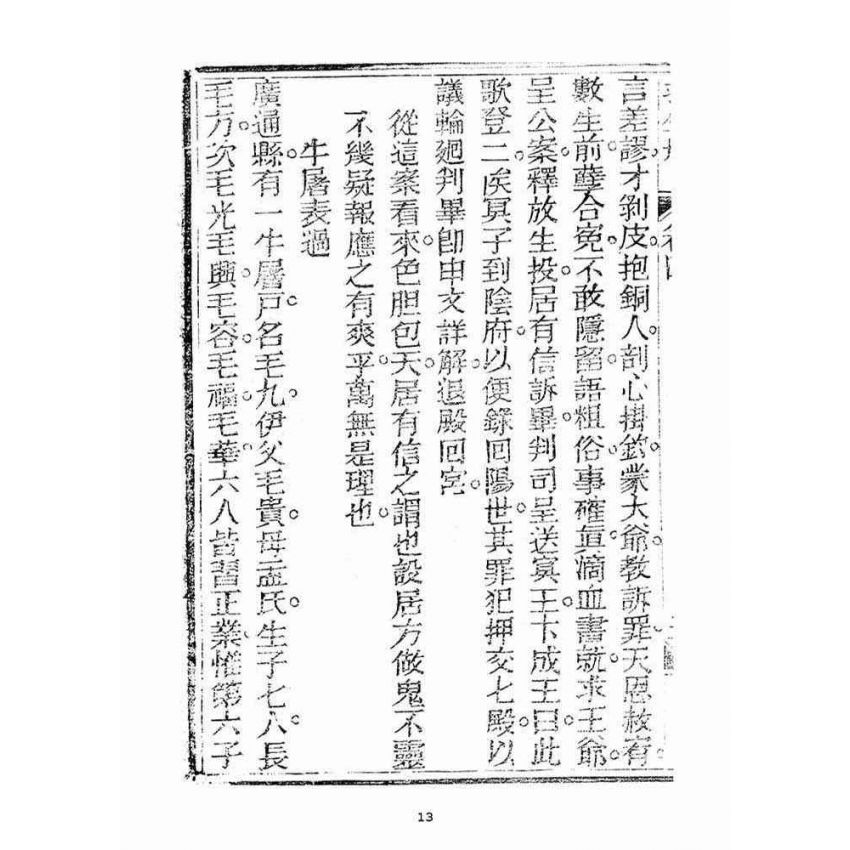 言差謬才剝皮抱銅人剖心掛鈎蒙大爺教訴罪天恩赦宥
數生前孽合寃不敢隱留語粗俗事確眞滴血書就求王爺
呈公案釋放生投居有信訴畢判司呈送冥王卞成王曰此
歌登二矣冥子到陰府以便錄回陽世其罪犯押交七殿以
議輪廻判畢卽申文詳解退殿回宮
從這案看來色胆包天居有信之謂也設居方做鬼不靈
不幾疑報應之有爽乎萬無是理也
牛屠表過
廣通縣有一牛屠戶名毛九伊父毛貴母孟氏生子七八長
毛方次毛光毛興毛容毛福毛華六八皆習正業惟第六子
13